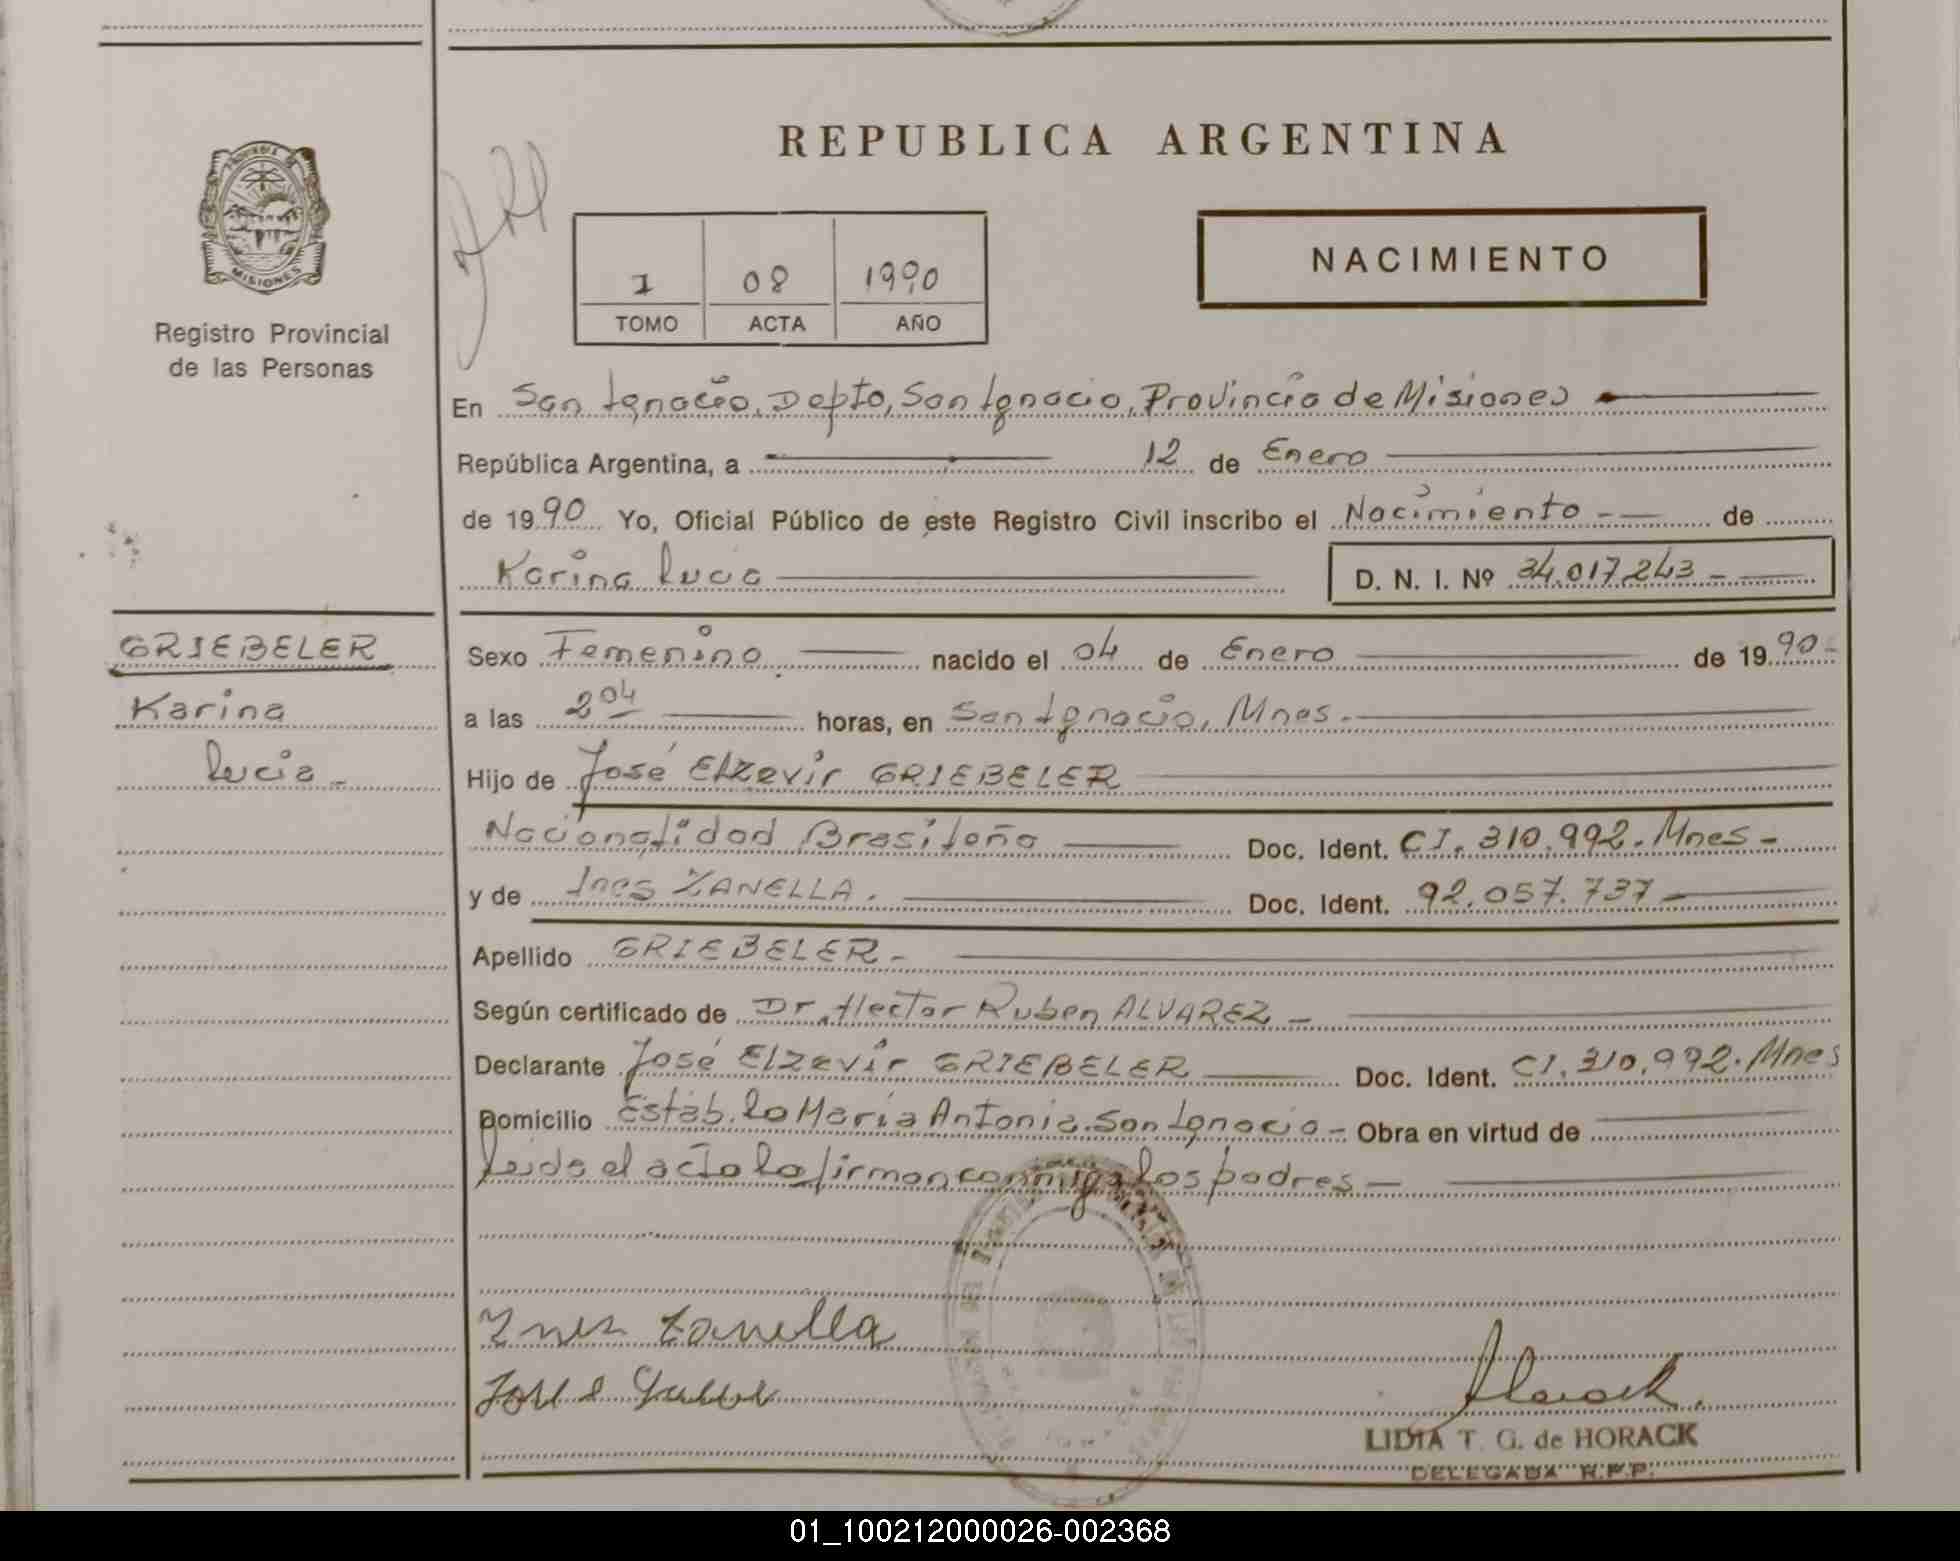 REPUBLICA ARGENTINA
MISIONES
Registro Provincial
de las Personas
1 08 1990
TOMO ACTA AÑO
NACIMIENTO
En San Ignacio, Depto, San Ignacio, Provincia de Misiones
República Argentina, a 12 de Enero
de 1990 Yo, Oficial Público de este Registro Civil inscribo el Nacimiento de
Karina Lucia D. N. I. Nº 34.017.243
GRIEBELER
Karina
Lucia
Sexo Femenino nacido el 04 de Enero de 1990
a las 2 04 horas, en San Ignacio, Mnes.
Hijo de José Elzevir GRIEBELER
Nacionalidad Brasileña Doc. Ident. CI. 310.992. Mnes
y de Ines ZANELLA. Doc. Ident. 92.057.737
Apellido GRIEBELER
Según certificado de Dr. Hector Ruben ALVAREZ
Declarante José Elzevir GRIEBELER Doc. Ident. CI. 310.992. Mnes
Domicilio Estab. la Maria Antonia. San Ignacio Obra en virtud de
leida el acta la firman conmigo los padres
Ines Zanella
LIDIA T. G. de HORACK
DELEGADA R.P.P.
01_100212000026-002368